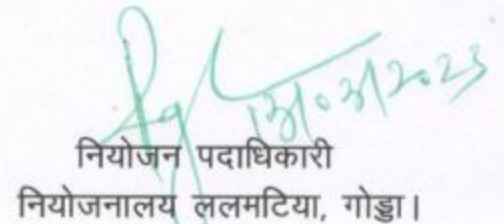 13/03/2023
नियोजन पदाधिकारी
नियोजनालय ललमटिया, गोड्डा।